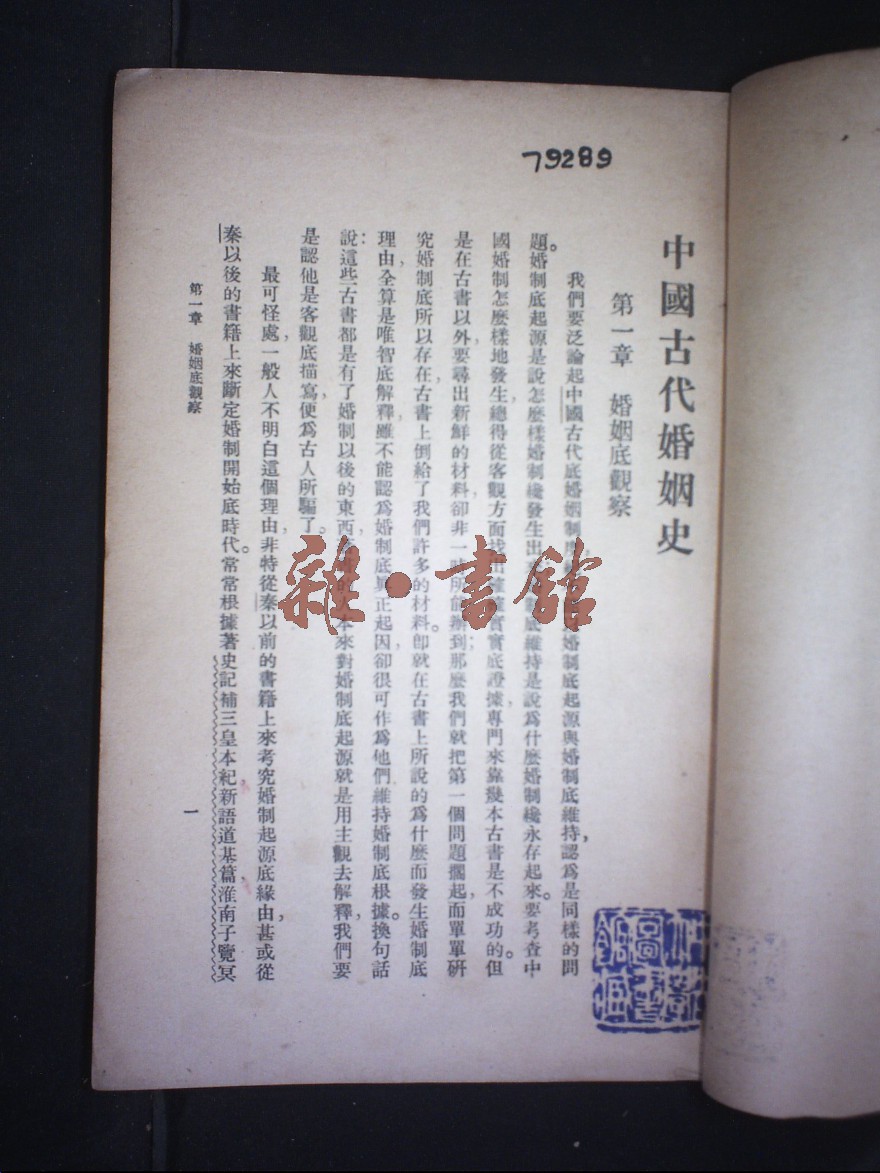 79289
中國古代婚姻史
第一章 婚姻底觀察
我們要泛論起中國古代底婚姻制度,婚制底起源與婚制底維持,認爲是同樣的問
題。婚制底起源是說怎麼樣婚制纔發生出底維持是說爲什麼婚制纔永存起來。要考查中
國婚制怎麼樣地發生,總得從客觀方面找出實實底證據,專門來靠幾本古書是不成功的。但
是在古書以外,要尋出新鮮的材料,卻非一時所能辦到;那麼我們就把第一個問題擱起,而單單研
究婚制底所以存在,古書上倒給了我們許多的材料。卽就在古書上所說的爲什麼而發生婚制底
理由,全算是唯智底解釋,雖不能認爲婚制底真正起因,卻很可作爲他們維持婚制底根據。換句話
說:這些古書都是有了婚制以後的東西,本來對婚制底起源就是用主觀去解釋,我們要
是認他是客觀底描寫,便爲古人所騙了。
最可怪處,一般人不明白這個理由,非特從秦以前的書籍上來考究婚制起源底緣由,甚或從
秦以後的書籍上來斷定婚制開始底時代。常常根據著史記補三皇本紀,新語道基篇,淮南子覽冥
第一章 婚姻底觀察
一
雜·書館
圖書